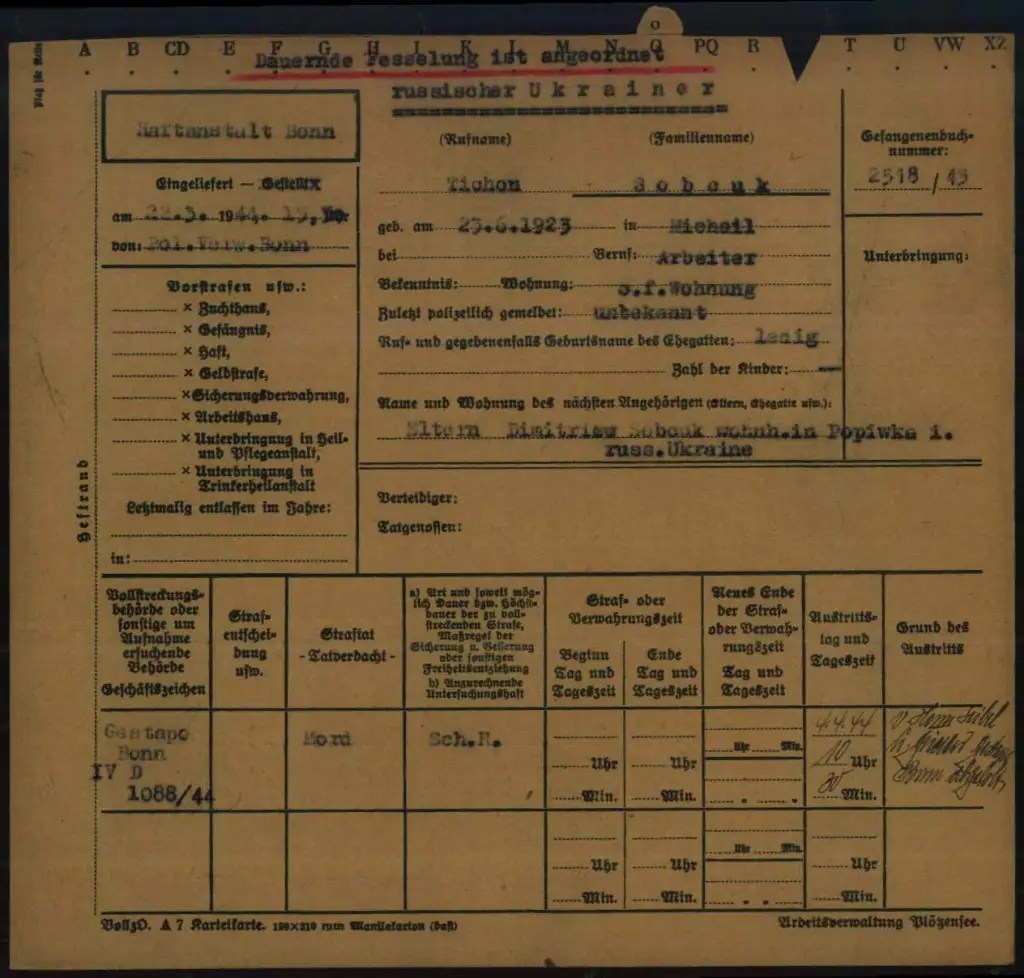 A B CD E F G H I K L M N O PQ R T U VW XZ
Dauernde Fesselung ist angeordnet
russischer Ukrainer
Haftanstalt Bonn
(Rufname) (Familienname)
Gefangenenbuch-
nummer:
2518 / 43
Eingeliefert — Gestellt
Tichon Sobcuk
am 22.3. 1944. 15, Uhr
geb. am 23.6.1923 in Micheil
von: Pol.Verw.Bonn
bei Beruf: Arbeiter
Unterbringung:
Bekenntnis: Wohnung: o.f.Wohnung
Vorstrafen usw.:
Zuletzt polizeilich gemeldet: unbekannt
× Zuchthaus,
× Gefängnis,
Ruf- und gegebenenfalls Geburtsname des Ehegatten: ledig
× Haft,
× Geldstrafe,
Zahl der Kinder: —
× Sicherungsverwahrung,
Name und Wohnung des nächsten Angehörigen (Eltern, Ehegatte usw.):
× Arbeitshaus,
Eltern Dimitriew Sobcuk wohnh.in Popiwka i.
russ.Ukraine
× Unterbringung in Heil-
und Pflegeanstalt,
× Unterbringung in
Trinkerheilanstalt
Letztmalig entlassen im Jahre:
in:
Verteidiger:
Tatgenossen:
Heftrand
Vollstreckungs-
behörde oder
sonstige um
Aufnahme
ersuchende
Behörde
Geschäftszeichen
Straf-
entschei-
dung
usw.
Straftat
- Tatverdacht -
a) Art und soweit mög-
lich Dauer bzw. Höchst-
dauer der zu voll-
streckenden Strafe,
Maßregel der
Sicherung u. Besserung
oder sonstigen
Freiheitsentziehung
b) Anzurechnende
Untersuchungshaft
Straf- oder
Verwahrungszeit
Beginn
Tag und
Tageszeit
Ende
Tag und
Tageszeit
Neues Ende
der Straf-
oder Verwah-
rungszeit
Tag und
Tageszeit
Austritts-
tag und
Tageszeit
Grund des
Austritts
Gestapo
Bonn
IV D
1088/44
Mord
Sch.H.
Uhr
Min.
Uhr
Min.
Uhr Min.
4.4.44
10 Uhr
30 Min.
Uhr
Min.
Uhr
Min.
Uhr Min.
Uhr
Min.
VollzO. A 7 Karteikarte.
Arbeitsverwaltung Plötzensee.